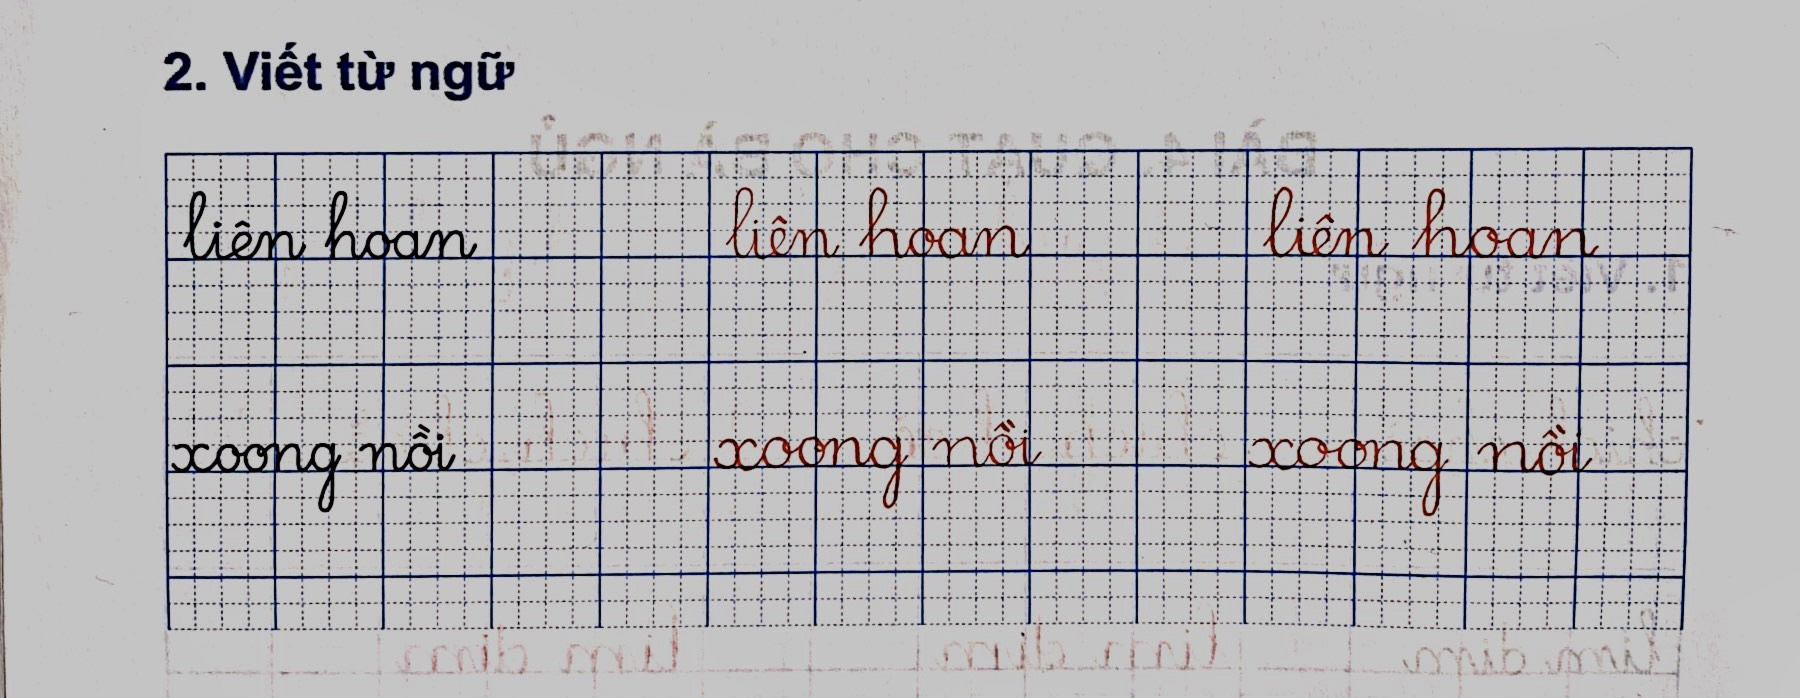 2. Viết từ ngữ
liên hoan liên hoan liên hoan
xoong nồi xoong nồi xoong nồi